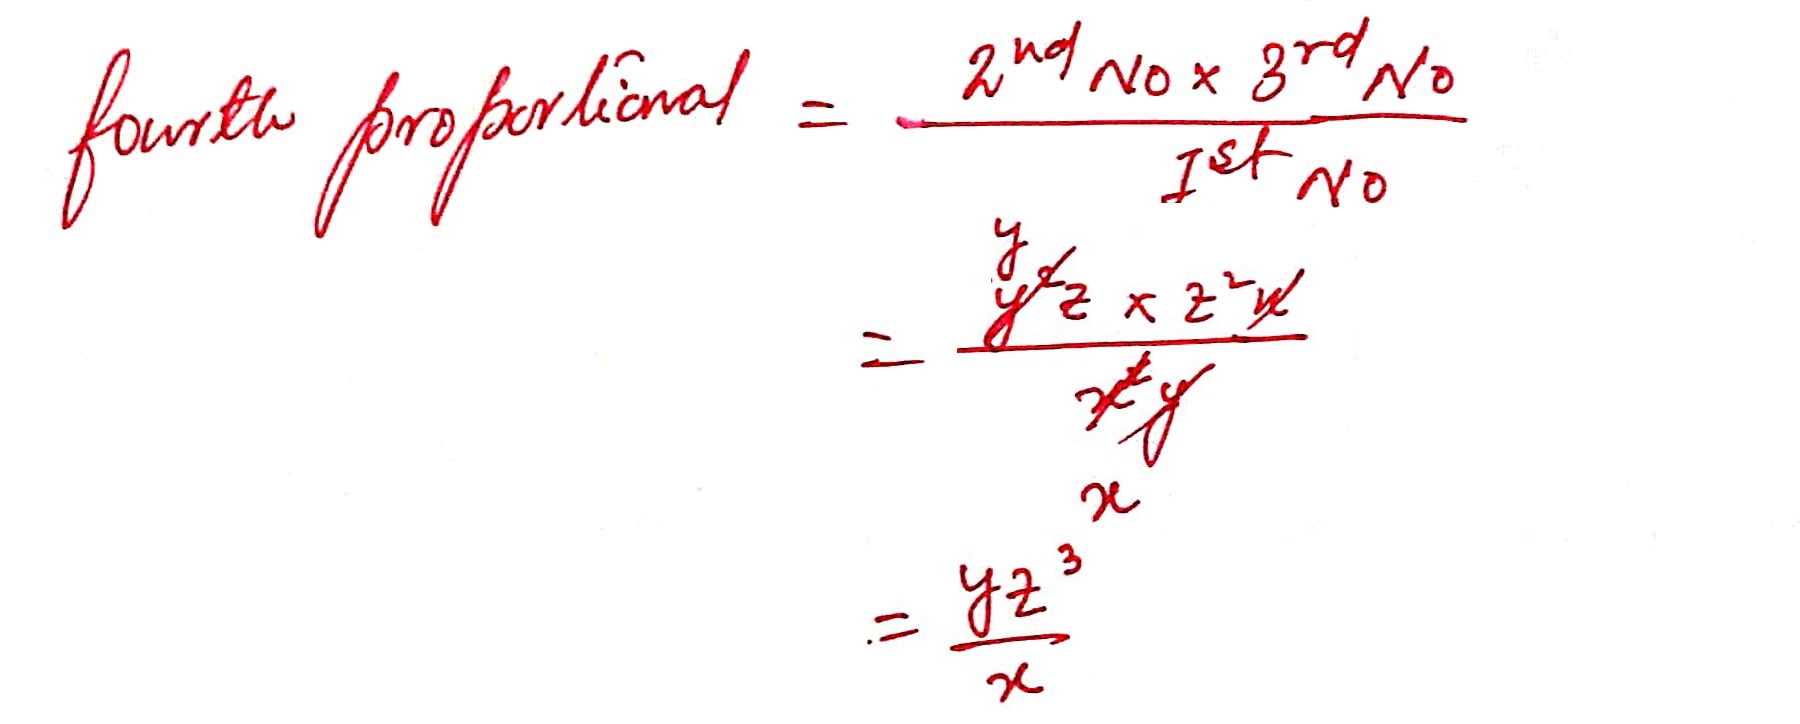 fourth proportional = 2nd No × 3rd No
Ist No
y
= y²z × z²x
x²y
x
= yz³
x